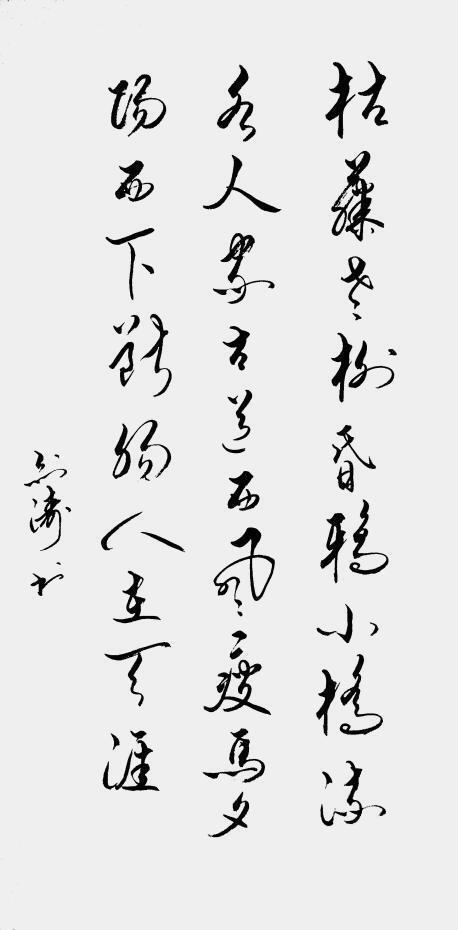 枯藤老樹昏鴉小橋流
水人家古道西風瘦馬夕
陽西下斷腸人在天涯
濤书